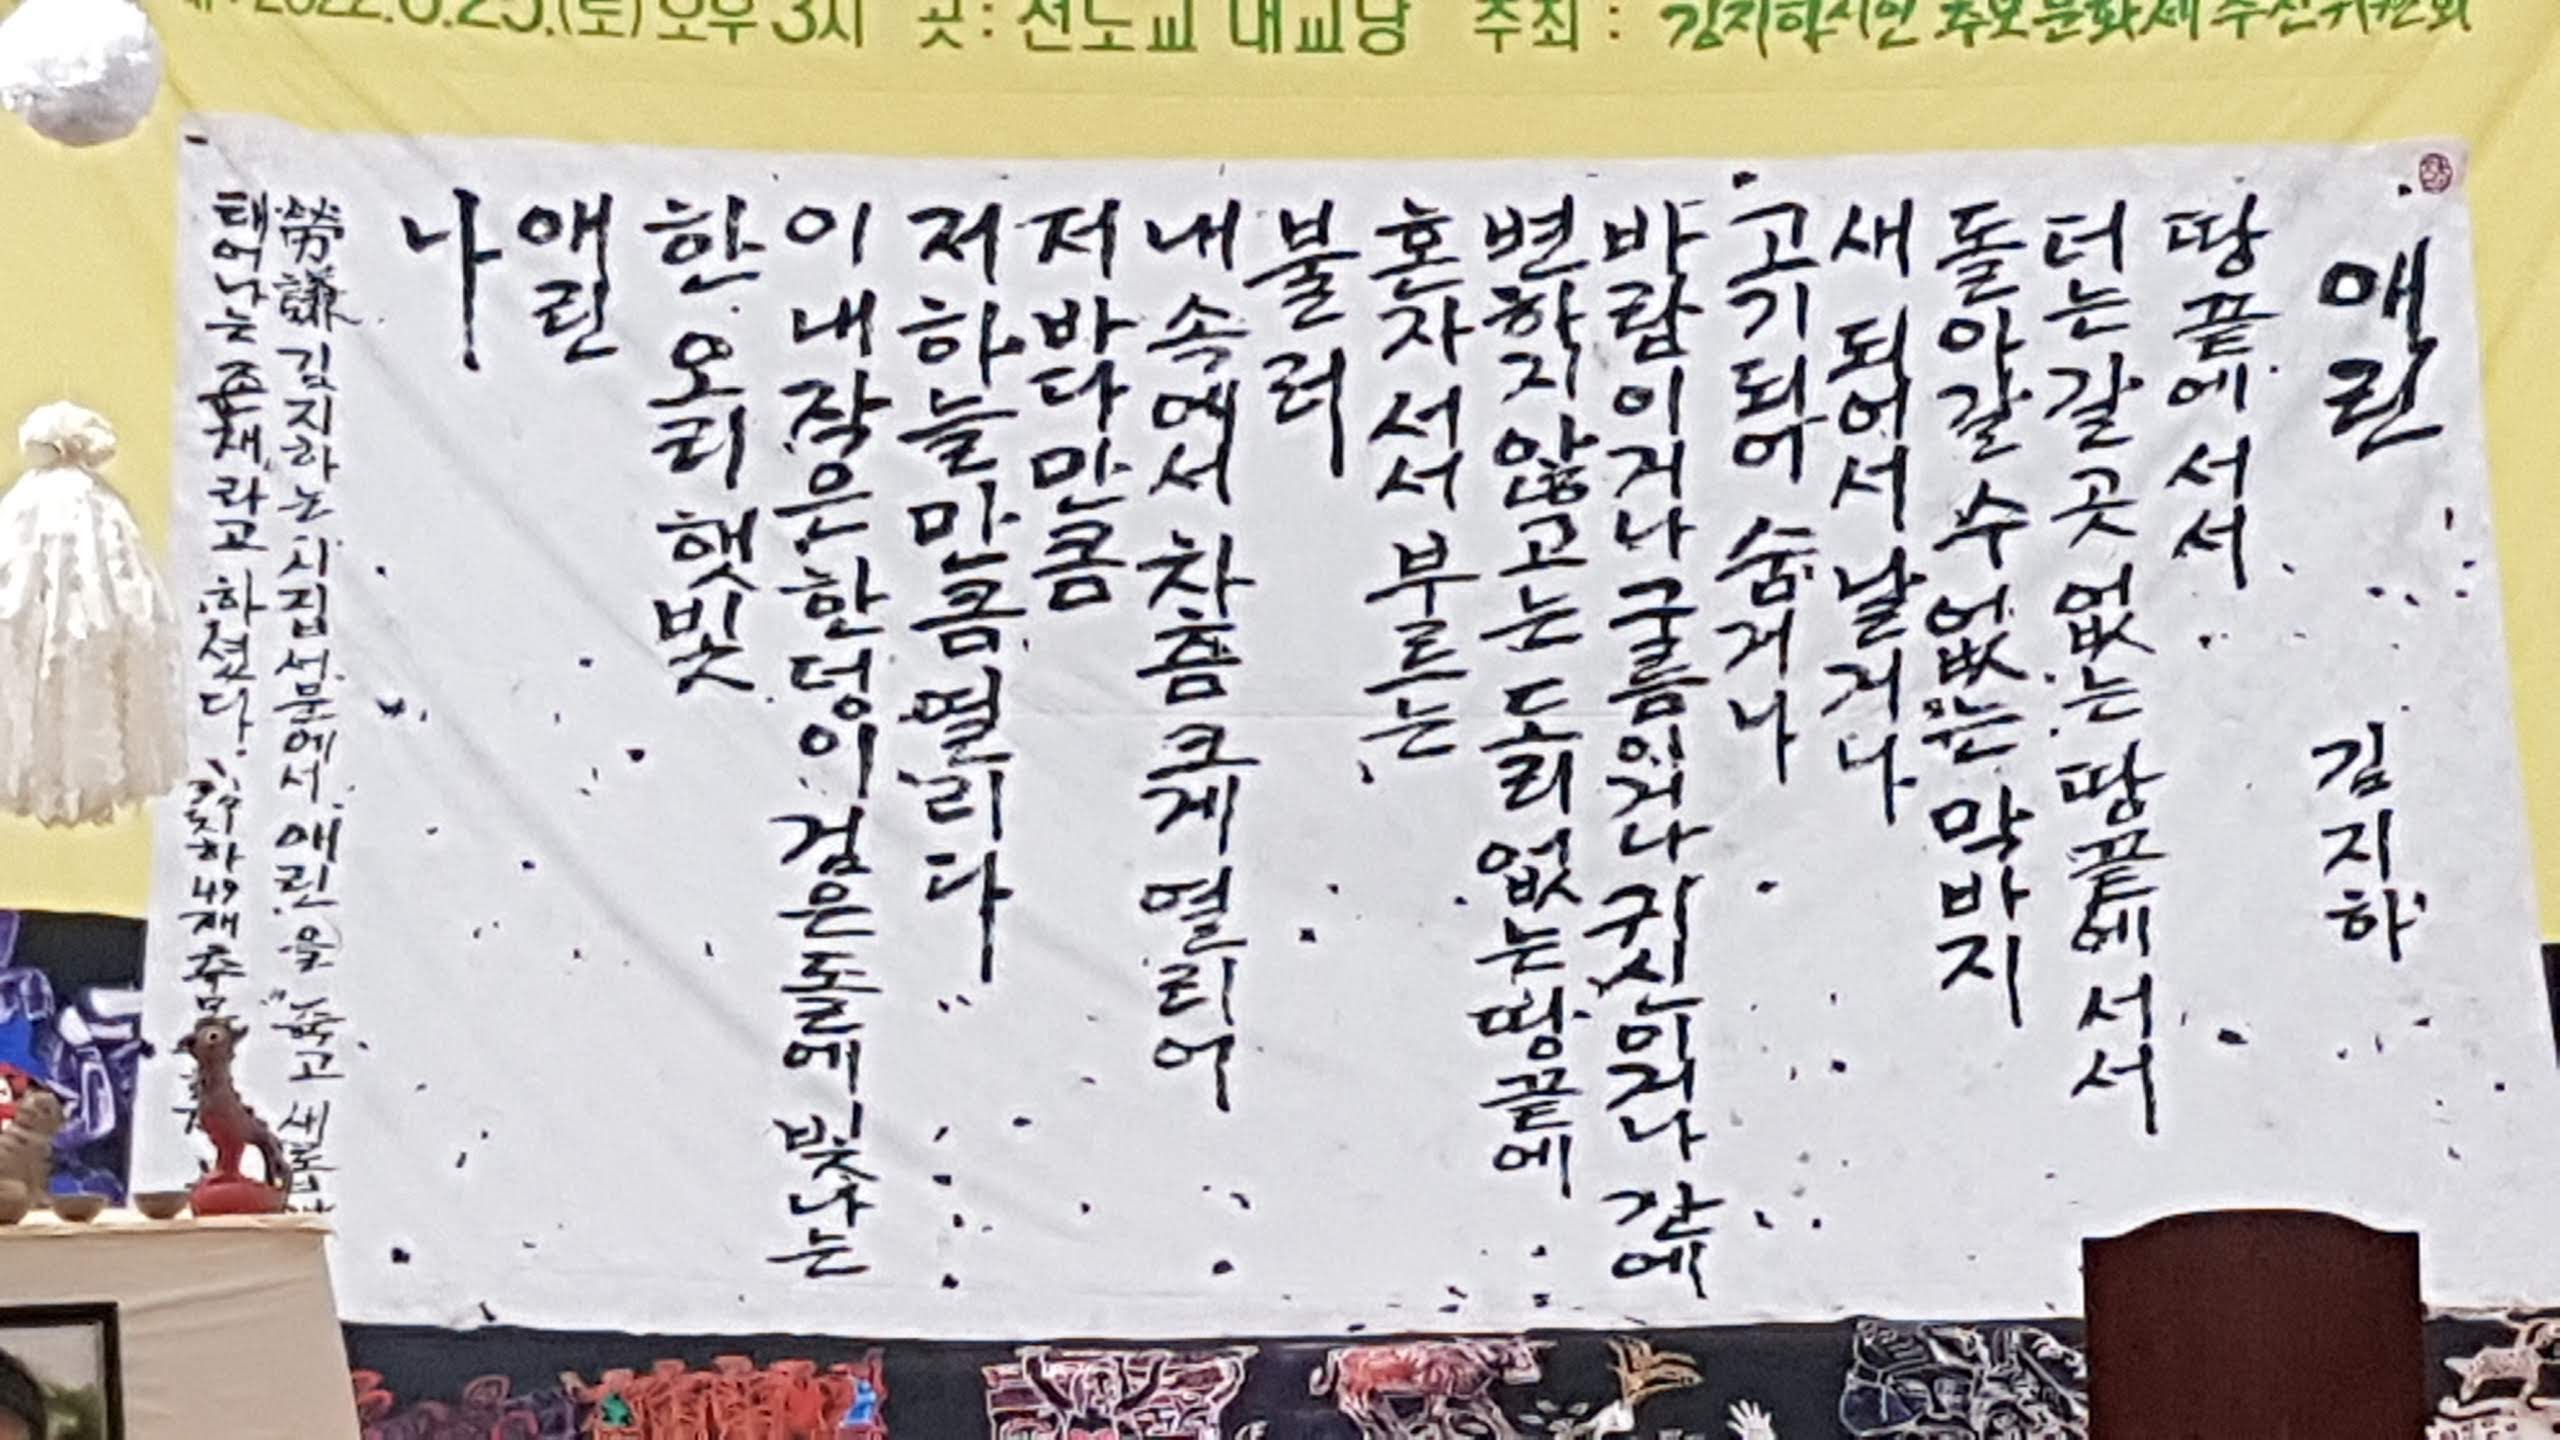 2022.6.25.(토) 오후 3시 곳: 천도교 대교당 주최: 김지하시인 추모문화제 추진위원회
애린 김지하
땅끝에 서서
더는 갈 곳 없는 땅끝에 서서
돌아갈 수 없는 막바지
새 되어서 날거나
고기 되어 숨거나
바람이거나 구름이거나 귀신이거나 간에
변하지 않고는 도리 없는 땅끝에
혼자 서서 부르는
불러
내 속에서 차츰 크게 열리어
저 바다만큼
저 하늘만큼 열리다
이 내 작은 한 덩이 검은 돌에 빛나는
한 오리 햇빛
애린
나
勞謙 김지하는 시집 서문에서 애린을 "죽고 새로
태어나는 존재"라고 하셨다. 김지하 49재 추모